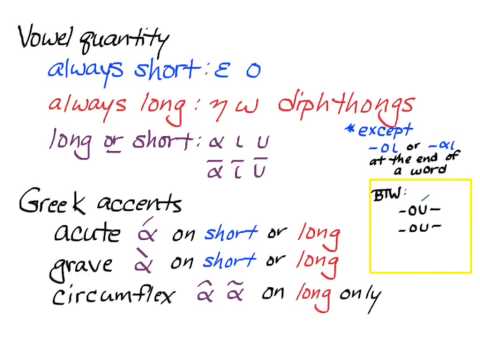 Vowel quantity
always short: ε ο
always long: η ω diphthongs
*except
-οι or -αι
at the end of
a word
long or short: α ι υ
ᾱ ῑ ῡ
BTW:
-ού-
-ου-
Greek accents
acute ά on short or long
grave ὰ on short or long
circumflex α̂ α̃ on long only